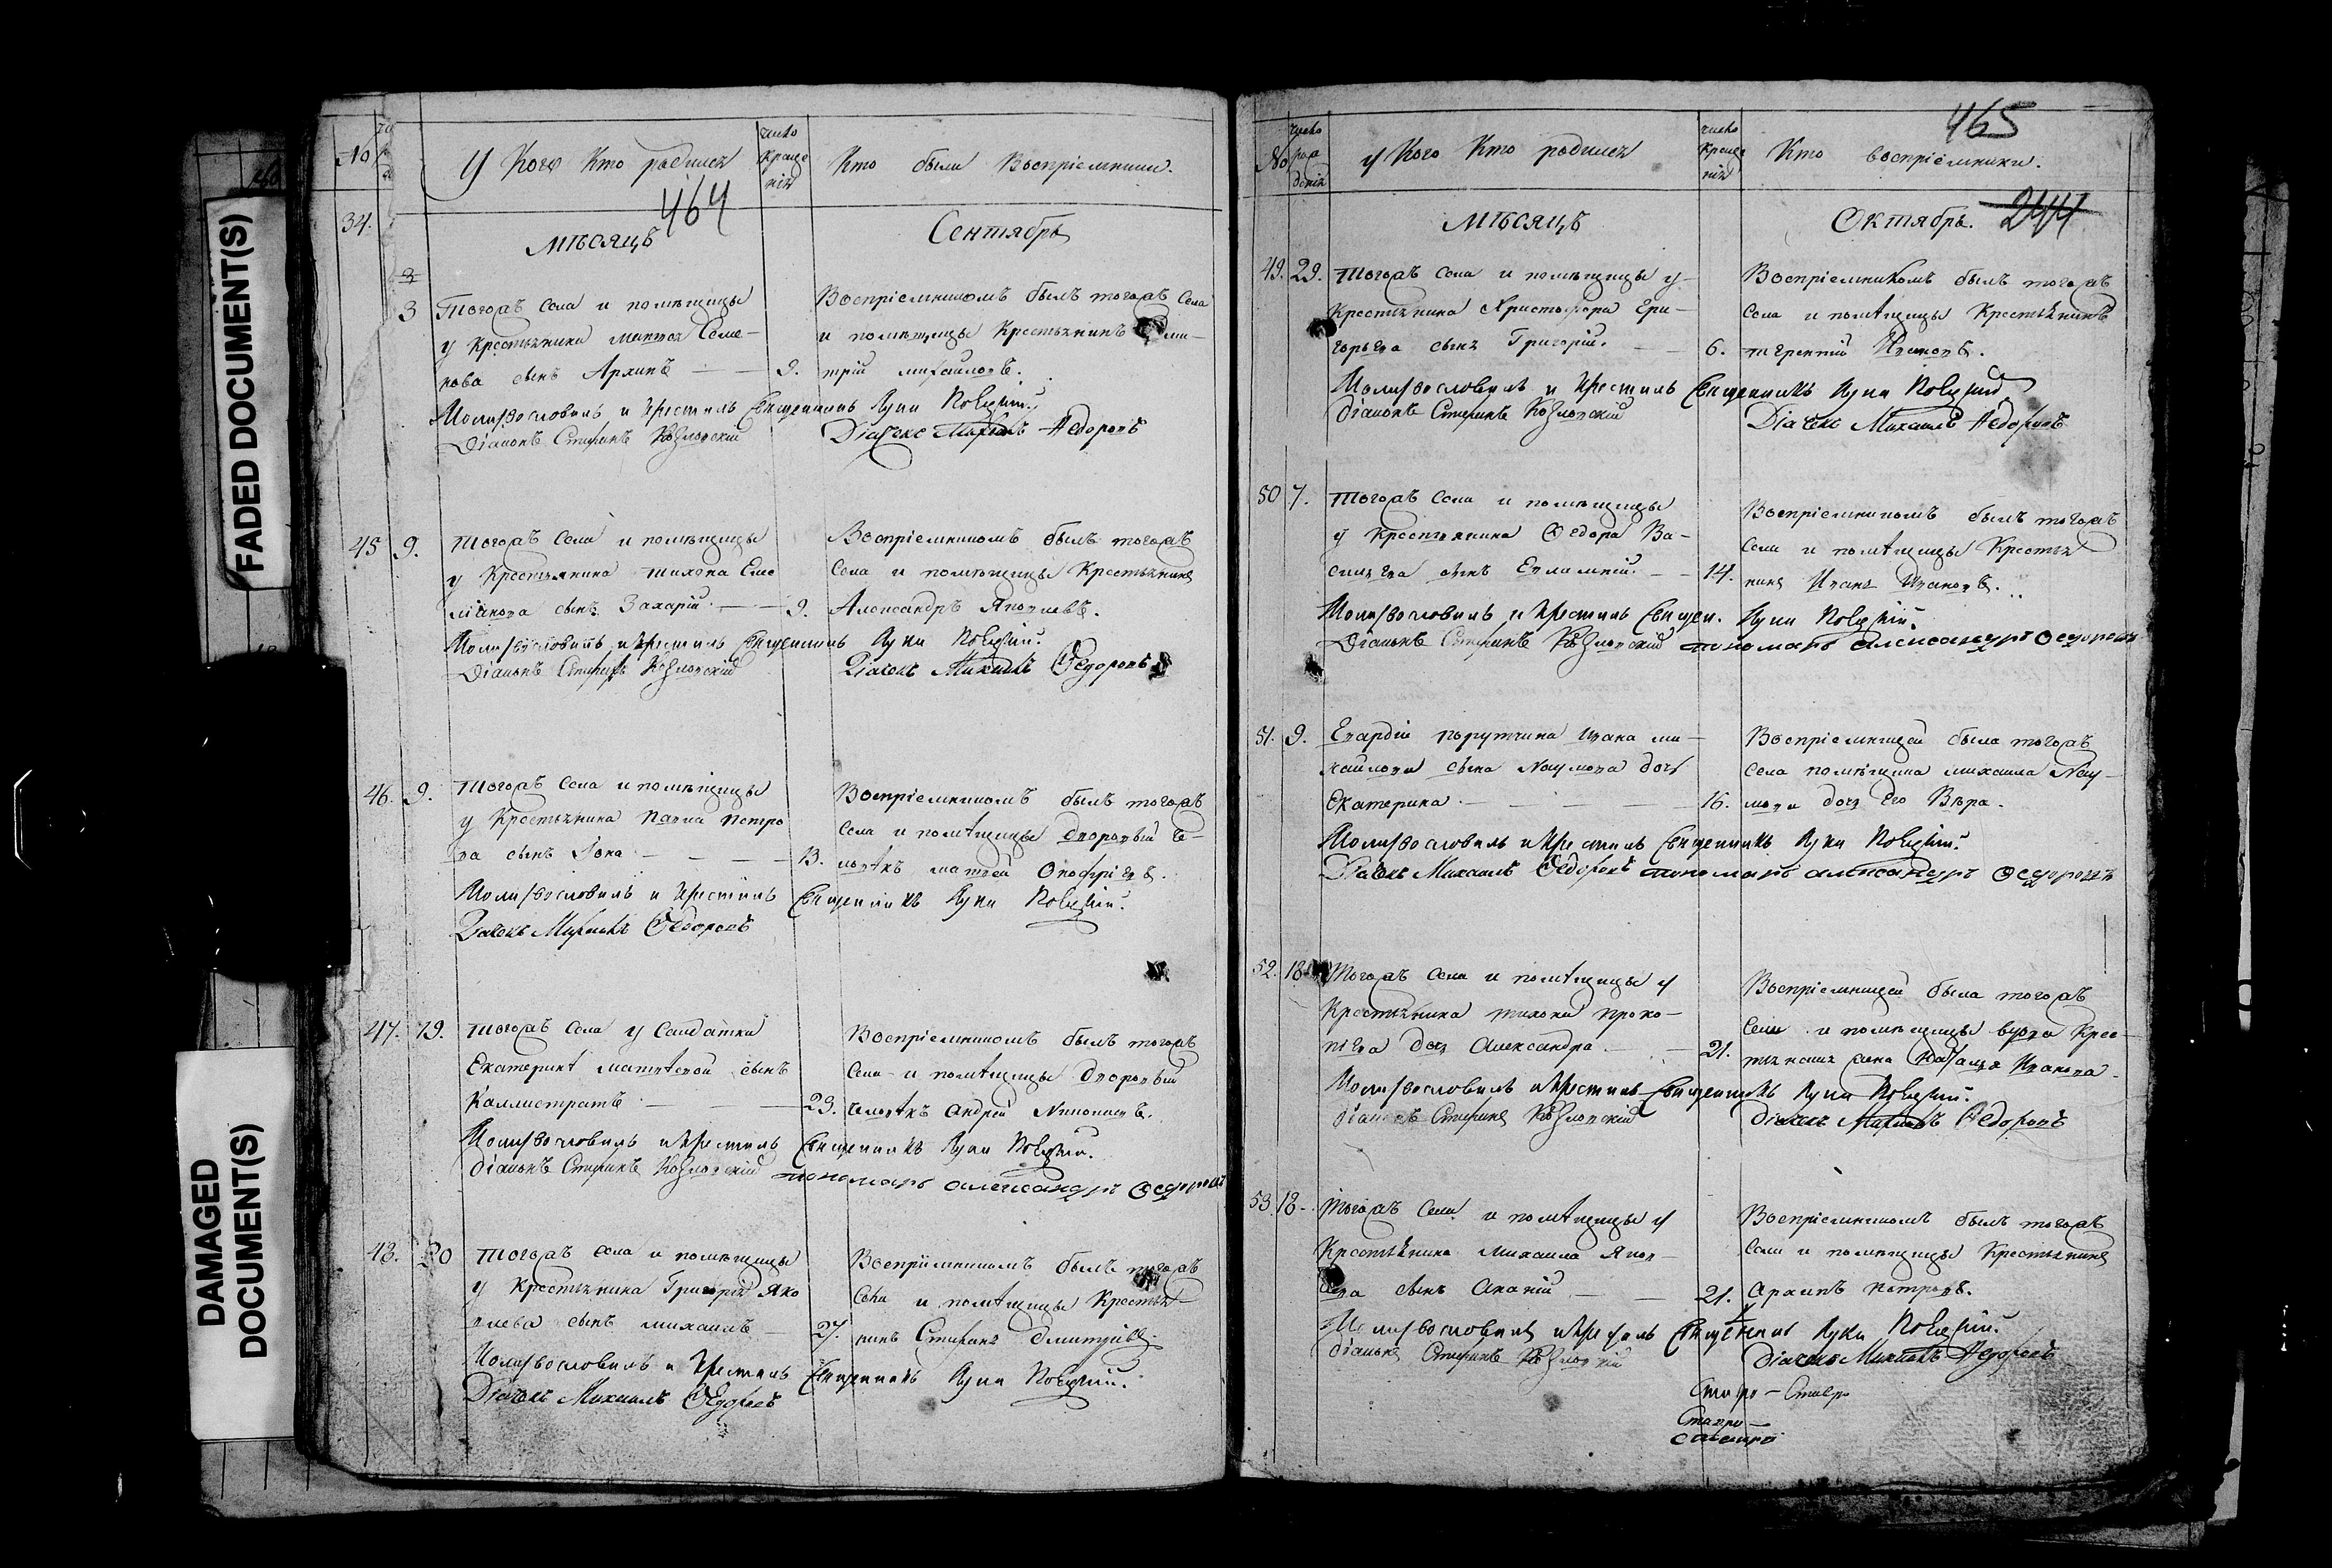 FADED DOCUMENT(S)
DAMAGED DOCUMENT(S)
У Кого Кто родился
число крещенія
Кто были Воспріемники.
464
34.
Мѣсяцъ
Сентябрь
3
Тогожъ села и помѣщицы
у крестьянина
сынъ Архипъ
9.
Воспріемникомъ былъ тогожъ села
и помѣщицы крестьянинъ Дми-
трій Михайловъ.
Молитвословилъ и крестилъ Священникъ Лука
Діаконъ Стефанъ Козловскій
Діячекъ Михаилъ Федоровъ
45 9.
Тогожъ села и помѣщицы
у крестьянина Тихона Еме
льянова сынъ Захарій.
9.
Воспріемникомъ былъ тогожъ
села и помѣщицы крестьянинъ
Александръ Яковлевъ.
Молитвословилъ и крестилъ Священникъ Лука
Діаконъ Стефанъ Козловскій
Діячекъ Михаилъ Федоровъ
46. 9.
Тогожъ села и помѣщицы
у крестьянина Павла Петро
ва сынъ Іона
13.
Воспріемникомъ былъ тогожъ
села и помѣщицы дворовый че-
ловѣкъ Матвей Онофріевъ.
Молитвословилъ и крестилъ Священникъ Лука
Діячекъ Михаилъ Федоровъ
47. 19.
Тогожъ села у солдатки
Екатерины Матвѣевой сынъ
Каллистратъ
23.
Воспріемникомъ былъ тогожъ
села и помѣщицы дворовый
человѣкъ Андрей
Молитвословилъ и крестилъ Священникъ Лука
Діаконъ Стефанъ Козловскій
пономарь Александръ Федоровъ
48. 20
Тогожъ села и помѣщицы
у крестьянина Григорія Яко
влева сынъ Михаилъ
27.
Воспріемникомъ былъ тогожъ
села и помѣщицы крестья-
нинъ Стефанъ Дмитріевъ.
Молитвословилъ и крестилъ Священникъ Лука
Діячекъ Михаилъ Федоровъ
465
No
число рожденія
у Кого Кто родился
число крещенія
Кто воспріемники.
Мѣсяцъ
Октябрь.
244
49. 29.
Тогожъ села и помѣщицы у
крестьянина Христофора Гри-
горьева сынъ Григорій.
6.
Воспріемникомъ былъ тогожъ
села и помѣщицы крестьянинъ
Терентій Ивановъ.
Молитвословилъ и крестилъ Священникъ Лука
Діаконъ Стефанъ Козловскій
Діячекъ Михаилъ Федоровъ
50 7.
Тогожъ села и помѣщицы
у крестьянина Федора Ва-
сильева сынъ Евлампій.
14.
Воспріемникомъ былъ тогожъ
села и помѣщицы крестья
нинъ Иванъ Ивановъ.
Молитвословилъ и крестилъ Священ. Лука
Діаконъ Стефанъ Козловскій пономарь Александръ Федоровъ
51. 9.
Гвардіи порутчика Ивана Ми-
хайлова сына Наумова дочь
Екатерина.
16.
Воспріемницей была тогожъ
села помѣщика Михаила Нау-
мова дочь его Вѣра.
Молитвословилъ и крестилъ Священникъ Лука
Діячекъ Михаилъ Федоровъ пономарь Александръ Федоровъ
52. 18
Тогожъ села и помѣщицы у
крестьянина Тихона Проко-
пьева дочь Александра
21.
Воспріемницей была тогожъ
села и помѣщицы вдова крес-
тьянская жена Наталья Иванова
Молитвословилъ и крестилъ Священникъ Лука
Діаконъ Стефанъ Козловскій
Діячекъ Михаилъ Федоровъ
53. 18
Тогожъ села и помѣщицы у
крестьянина Михаила Яков-
лева сынъ Ананій
21.
Воспріемникомъ былъ тогожъ
села и помѣщицы крестьянинъ
Архипъ Петровъ.
Молитвословилъ и крестилъ Священникъ Лука
Діаконъ Стефанъ Козловскій
Діячекъ Михаилъ Федоровъ